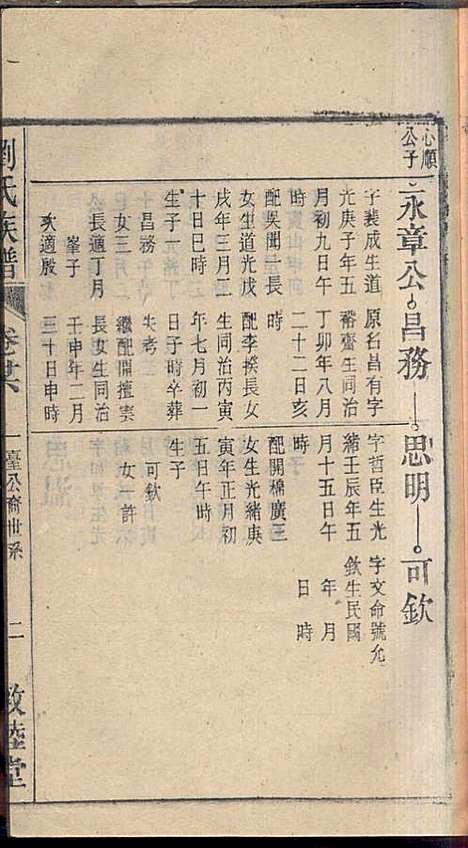 心順
公子
永章公
昌務
思明
可欽
字裴成生道
光庚子年五
月初九日午
配吳聞一長
女生道光戊
戌年三月二
十日巳時
生子一
昌務
女三月二
長適丁月
峯子
次適殷
原名昌有字
裕齋生同治
丁卯年八月
二十二日亥
時
配李揆長女
生同治丙寅
年七月初一
日子時卒葬
失考
繼配開擅寀
長女生同治
壬申年二月
三十日申時
字哲臣生光
緒壬辰年五
月十五日午
時
配開棉廣三
女生光緒庚
寅年正月初
五日午時
生子一
可欽
女一許
字文命號允
欽生民國
年 月
日 時
劉氏族譜
卷廿六
一臺公裔世系
二
敦睦堂